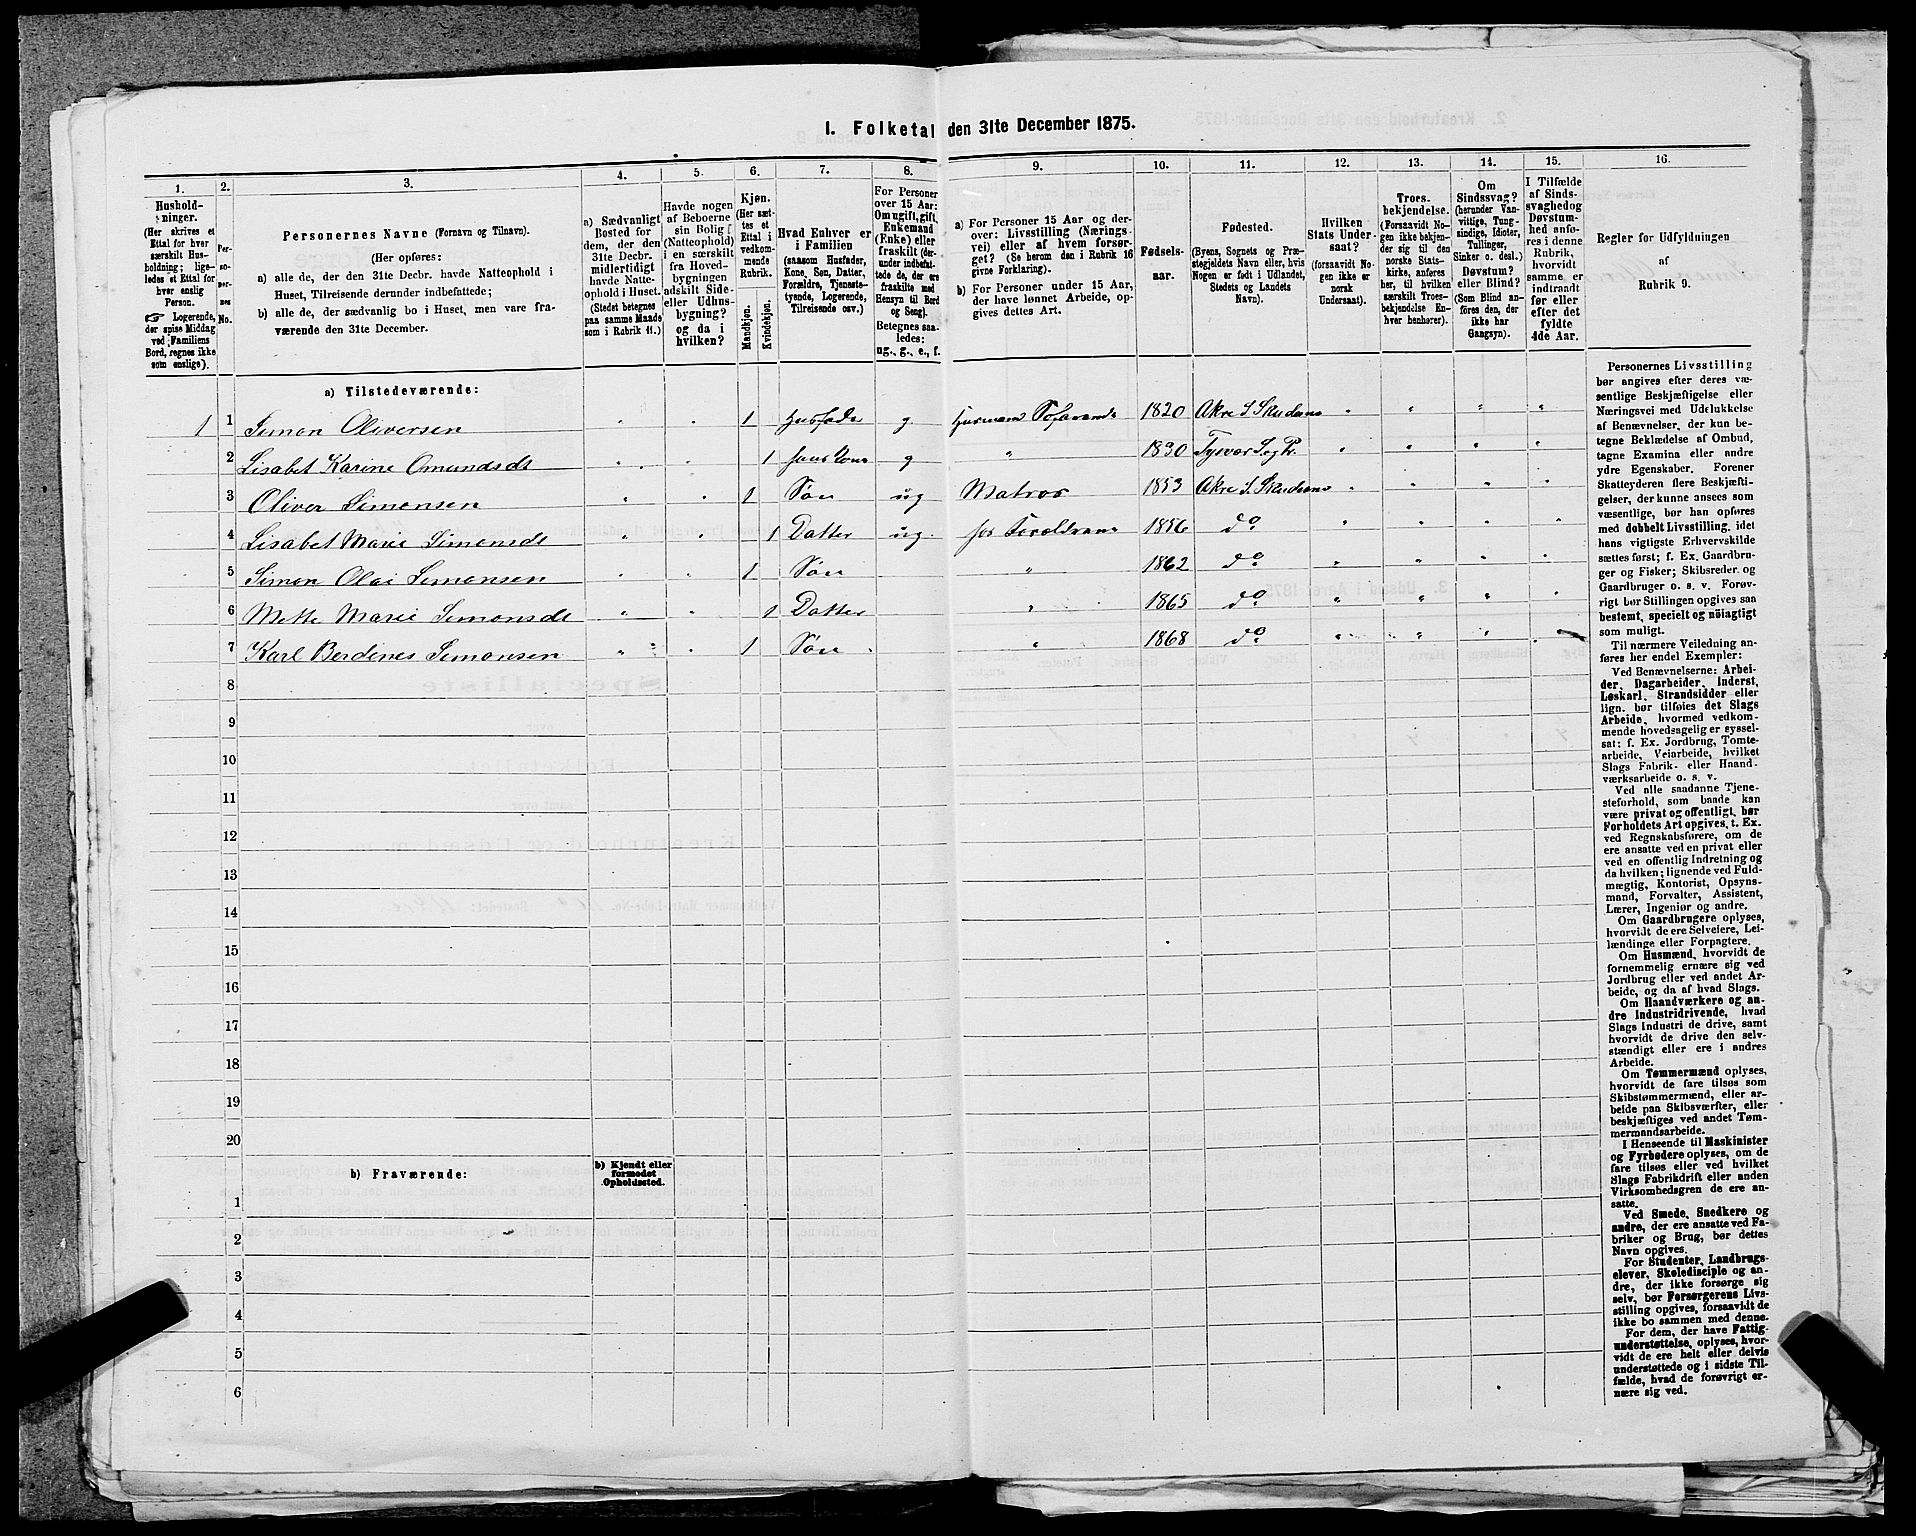 I. Folketal den 31te December 1875.
1. 2. 3. 4. 5. 6. 7. 8. 9. 10. 11. 12. 13. 14. 15. 16.
Hushold-
ninger.
(Her skrives et
Ettal for hver
særskilt Hus-
holdning; lige-
ledes et Ettal for
hver enslig
Person.
☞ Logerende,
der spise Middag
ved Familiens
Bord, regnes ikke
som enslige).
Per-
so-
ner-
nes
No.
Personernes Navne (Fornavn og Tilnavn).
(Her opføres:
a) alle de, der den 31te Decbr. havde Natteophold i
Huset, Tilreisende derunder indbefattede;
b) alle de, der sædvanlig bo i Huset, men vare fra-
værende den 31te December.
a) Sædvanligt
Bosted for
dem, der den
31te Decbr.
midlertidigt
havde Natte-
ophold i Huset.
(Stedet betegnes
paa samme Maade
som i Rubrik 11.)
Havde nogen
af Beboerne
sin Bolig
(Natteophold)
i en særskilt
fra Hoved-
bygningen
adskilt Side-
eller Udhus-
bygning?
og da i
hvilken?
Kjøn.
(Her sæt-
tes et
Ettal i
vedkom-
mende
Rubrik.
Mandkjøn.
Kvindekjøn.
Hvad Enhver er
i Familien
(saasom Husfader,
Kone, Søn, Datter,
Forældre, Tjeneste-
tyende, Logerende,
Tilreisende osv.)
For Personer
over 15 Aar:
Om ugift, gift,
Enkemand
(Enke) eller
fraskilt (der-
under indbefat-
tede de, der ere
fraskilte med
Hensyn til Bord
og Seng).
Betegnes saa-
ledes:
ug., g., e., f.
a) For Personer 15 Aar og der-
over: Livsstilling (Nærings-
vei) eller af hvem forsør-
get? (Se herom den i Rubrik 16
givne Forklaring).
b) For Personer under 15 Aar,
der have lønnet Arbeide, op-
gives dettes Art.
Fødsels-
aar.
Fødested.
(Byens, Sognets og Præ-
stegjeldets Navn eller, hvis
Nogen er født i Udlandet,
Stedets og Landets
Navn).
Hvilken
Stats Under-
saat?
(forsaavidt No-
gen ikke er
norsk
Undersaat).
Troes-
bekjendelse.
(Forsaavidt No-
gen ikke bekjen-
der sig til den
norske Stats-
kirke, anføres
her, til hvilken
særskilt Troes-
bekjendelse En-
hver henhører).
Om
Sindssvag?
(herunder Van-
vittige, Tung-
sindige, Idioter,
Tullinger,
Sinker o. desl.)
Døvstum?
eller Blind?
(Som Blind an-
føres den, der
ikke har
Gangsyn).
I Tilfælde
af Sinds-
svaghed og
Døvstum-
hed anfø-
res i denne
Rubrik,
hvorvidt
samme er
indtraadt
før eller
efter det
fyldte
4de Aar.
Regler for Udfyldningen
af
Rubrik 9.
a) Tilstedeværende:
1 1 Simon Oliversen 1 Husfader g. Husmand 1820 Akre S. Skudenes
2 Lisabet Karine Omundsdt 1 hans Kone g " 1830 Tysvær S og Pr.
3 Oliver Simonsen 1 Søn ug Matros 1853 Akre S. Skudenes
4 Lisabet Marie Simonsdt 1 Datter ug. hos Foræeldrene 1856 do
5 Simon Olai Simonsen 1 Søn " 1862 do
6 Mette Marie Simonsdt 1 Datter " 1865 do
7 Karl Berdines Simonsen 1 Søn " 1868 do
8
9
10
11
12
13
14
15
16
17
18
19
20
b) Fraværende:
b) Kjendt eller
formodet
Opholdssted.
1
2
3
4
5
6
Personernes Livsstilling
bør angives efter deres væ-
sentlige Beskjæftigelse eller
Næringsvei med Udelukkelse
af Benævnelser, der kun be-
tegne Beklædelse af Ombud,
tagne Examina eller andre
ydre Egenskaber. Forener
Skatteyderen flere Beskjæfti-
gelser, der kunne ansees som
væsentlige, bør han opføres
med dobbelt Livsstilling, idet
hans vigtigste Erhvervskilde
sættes først; f. Ex. Gaardbru-
ger og Fisker; Skibsreder og
Gaardbruger o. s. v. Forøv-
rigt bør Stillingen opgives saa
bestemt, specielt og nøiagtigt
som muligt.
Til nærmere Veiledning an-
føres her endel Exempler:
Ved Benævnelserne: Arbei-
der, Dagarbeider, Inderst,
Løskarl, Strandsidder eller
lign. bør tilføies det Slags
Arbeide, hvormed vedkom-
mende hovedsagelig er syssel-
sat; f. Ex. Jordbrug, Tomte-
arbeide, Veiarbeide, hvilket
Slags Fabrik- eller Haand-
værksarbeide o. s. v.
Ved alle saadanne Tjene-
steforhold, som baade kan
være privat og offentligt, bør
Forholdets Art opgives, t. Ex.
ved Regnskabsførere, om de
ere ansatte ved en privat eller
ved en offentlig Indretning og
da hvilken; lignende ved Fuld-
mægtig, Kontorist, Opsyns-
mand, Forvalter, Assistent,
Lærer, Ingeniør og andre.
Om Gaardbrugere oplyses,
hvorvidt de ere Selveiere, Lei-
lændinge eller Forpagtere.
Om Husmænd, hvorvidt de
fornemmelig ernære sig ved
Jordbrug eller ved andet Ar-
beide, og da af hvad Slags.
Om Haandværkere og an-
dre Industridrivende, hvad
Slags Industri de drive, samt
hvorvidt de drive den selv-
stændigt eller ere i andres
Arbeide.
Om Tømmermænd oplyses,
hvorvidt de fare tilsøs som
Skibstømmermænd, eller ar-
beide paa Skibsværfter, eller
beskjæftiges ved andet Tøm-
mermandsarbeide.
I Henseende til Maskinister
og Fyrbødere oplyses, om de
fare tilsøs eller ved hvilket
Slags Fabrikdrift eller anden
Virksomhedsgren de ere an-
satte.
Ved Smede, Snedkere og
andre, der ere ansatte ved Fa-
briker og Brug, bør dettes
Navn opgives.
For Studenter, Landbrugs-
elever, Skoledisciple og an-
dre, der ikke forsørge sig
selv, bør Forsørgerens Livs-
stilling opgives, forsaavidt de
ikke bo sammen med denne.
For dem, der have Fattig-
understøttelse, oplyses, hvor-
vidt de ere helt eller delvis
understøttede og i sidste Til-
fælde, hvad de forøvrigt er-
nære sig ved.